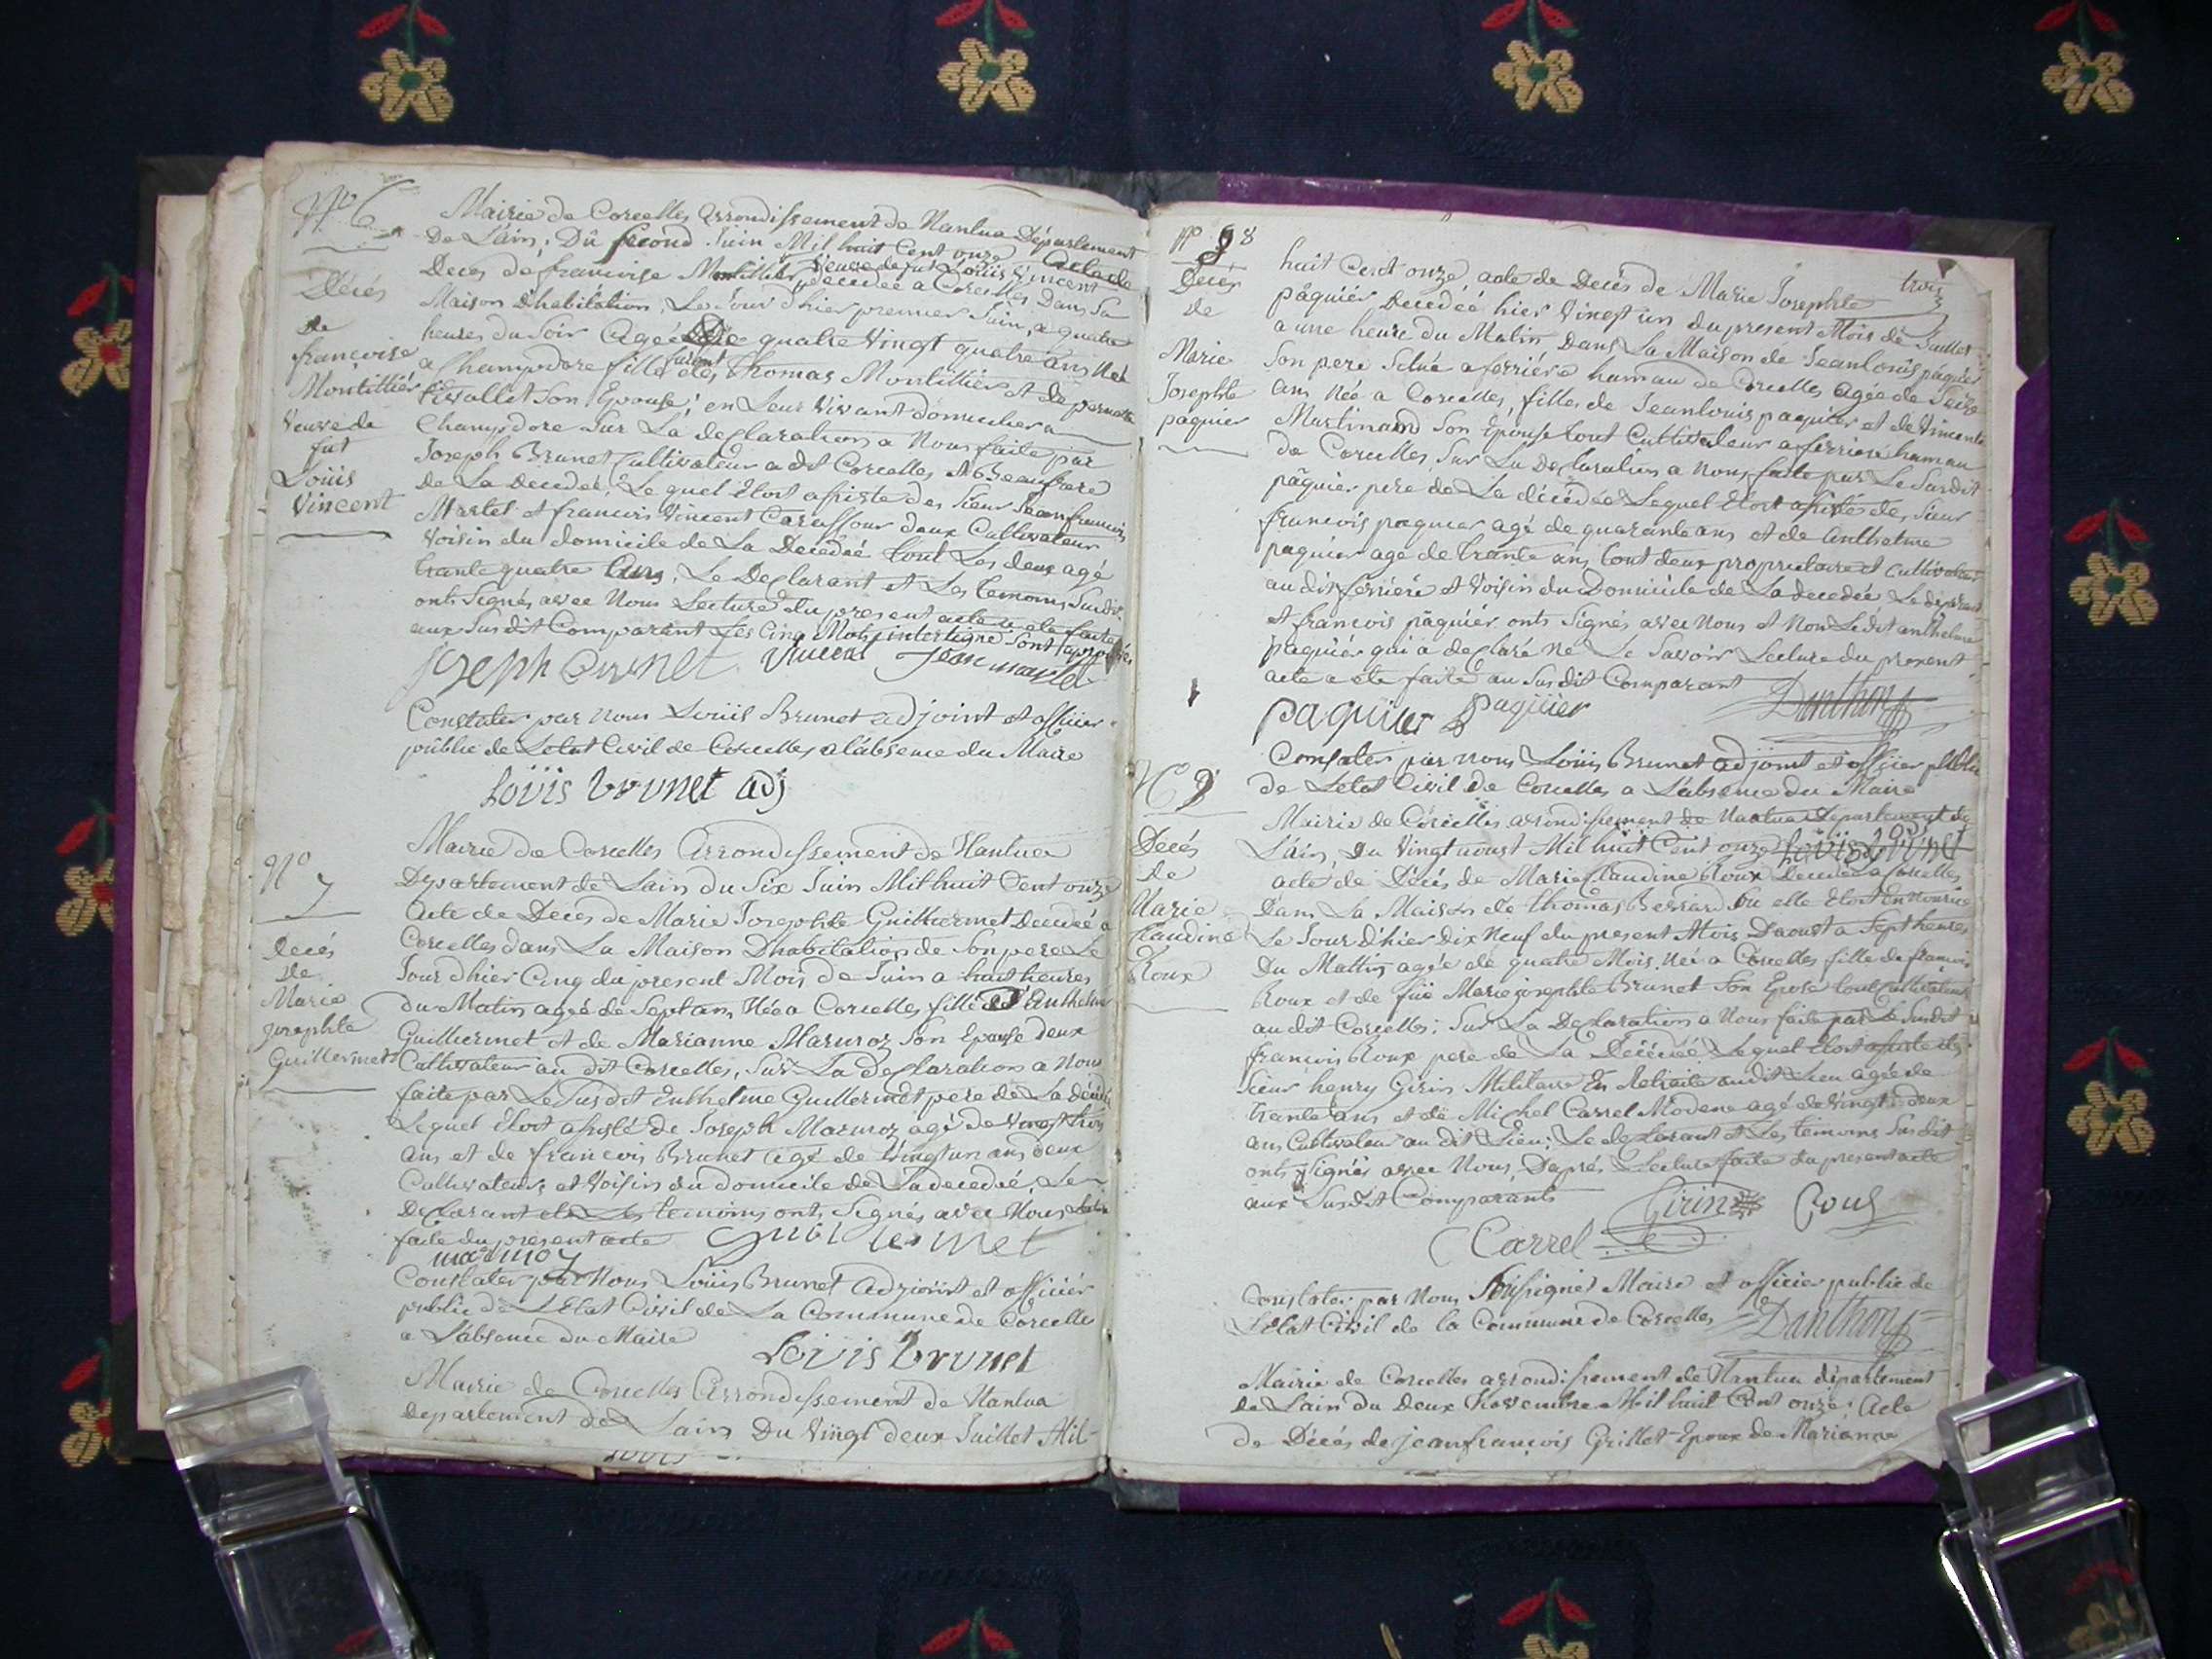 N° 6
Décés
de
francoise
Montillier
Veuve de
fut
Louis
Vincent
Mairie de Corcelles arrondissement de Nantua Département
De L'ain; Dû second Juin Mil huit Cent onze Acte de
Deces de francoise Montillier Veuve de fut Loüis Vincent
decedée a Corcelles dans Sa
Maison D'habitation, Le Jour d'hier premier Juin, a quatre
heures du Soir Agée De quatre Vingt quatre ans Née
a Champdore fille des furent Thomas Montillier et de pernette
Son Epouse; en Leur Vivant domicilier a
Champdore Sur La declaration a Nous faite par
Joseph Brunet Cultivateur a dit Corcelles Beaufrere
de La Decedeé, Le quel Etoit assiste des Sieur Jean francois
Martel et francois Vincent Carassour deux Cultivateur
Voisin du domicile de La Decedeé tout Les deux agé
trante quatre ans. Le Declarant et Les temoins Susdit
onts Signés avec Nous Lecture du present acte a ete faite
aux Susdit Comparant Les Cinq Mots interligne Sont approuvés
joseph brunet Vincent Jean martel
Constater par nous Loüis Brunet adjoint et officier
públic de Letat Civil de Corcelles a Labsence du Maire
Loüis brunet adj
N°
7
Decés
de
Marie
josephte
Guillermet
Mairie de Corcelles Arrondissement de Nantua
Departement de Lain du Six Juin Mil huit Cent onze
Acte de Deces de Marie Josephte Guillermet Decedeé a
Corcelles dans La Maison Dhabitation de Son pere Le
Jour d'hier Cinq du present Mois de Juin a huit heures
du Matin agée de Sept ans Née a Corcelles fille d'Anthelme
Guillermet et de Marianne Marmoz Son Epouse deux
Cultivateur au dit Corcelles, Sur La declaration a Nous
faite par Le Susdit Enthelme Guillermet pere de La décédé
Lequel Etoit assisté de Joseph Marmoz agé de Vingt trois
ans et de francois Brunet agé de Vingt un ans deux
Cultivateurs et Voisin du domicile de La decedeé Le
Declarant et Les temoins onts Signés avec Nous Lecture
faite du present acte Guillermet
marmoz
Constater par Nous Loüis Brunet adjoint et officiér
public de L'Etat Civil de La Commune de Corcelles
a Labsence du Maire
Loüis brunet
Mairie de Corcelles Arrondissement de Nantua
departement de Lain Du Vingt deux Juillet Mil-
N° 8
Decés
de
Marie
Josephte
paquier
trois
huit Cent onze, acte de Decés de Marie Josephte
pâquiér Decedeé hier Vingt un du present Mois de Juillet
a une heure du Matin dans La Maison de Jeanlouis paquier
Son pere Situé a ferriére hamau de Corcelles agée de Seize
ans Née a Corcelles, fille de Jeanlouis paquier et de Vincente
Martinand Son Epouse tout Cultivateur a ferriere hamau
de Corcelles Sur La Declaration a nous faite par Le Susdit
pâquier pere de La décédée Lequel Etoit assistés des Sieur
francois paquier agé de quarante ans et de Anthelme
paquiér agé de trante ans tout deux proprietaire et Cultivateur
au dit ferriére et Voisin du Domicile de La decedeé Le déclarant
et francois pâquiér onts Signés avec nous et Non Ledit anthelme
paquiér qui a declaré ne Le Savoir Lecture du present
acte a ete faite au Susdit Comparant Danthon
paquier paquier
Constater par nous Loüis Brunet adjoint et officier public
de Letat Civil de Corcelles a Labsence du Maire
Loüis brunet
N° 9
Decés
de
Marie
Claudine
Roux
Mairie de Corcelles arrondissement de Nantua Departement de
L'ain, Du Vingt aoust Mil huit Cent onze
acte de Décés de Marie Claudine Roux Decedée a Corcelles
Dans La Maison de Thomas Berrard Ou elle Etoit En Nourrice
Le Jour D'hier Dix Neuf du present Mois Daoust a Sept heures
Du Mattin agée de quatre Mois, Née a Corcelles fille de francois
Roux et de füe Marie josephte Brunet Son Epose tout Cultivateur
au dit Corcelles; Sur La Declaration a Nous faite par Le Susdit
francois Roux pere de La Décédée Lequel Etoit assisté des
Sieur henry Girin Militaire En Retraite audit Lieu agée de
trante ans et de Michel Carrel Modene agé de Vingt deux
ans Cultivateur au dit Lieu; Le declarant et Les temoins Susdit
onts Signés avec Nous Daprés Lecture faite du present acte
aux Susdit Comparants Girin Roux
Carrel
Constater par Nous Soussignet Maire et officier public de
L'Etat Civil de la Commune de Corcelles Danthon
Mairie de Corcelles arrondissement de Nantua département
de Lain du Deux Novembre Mil huit Cent onze; Acte
de Décés de jean françois Grillet Epoux de Marianne